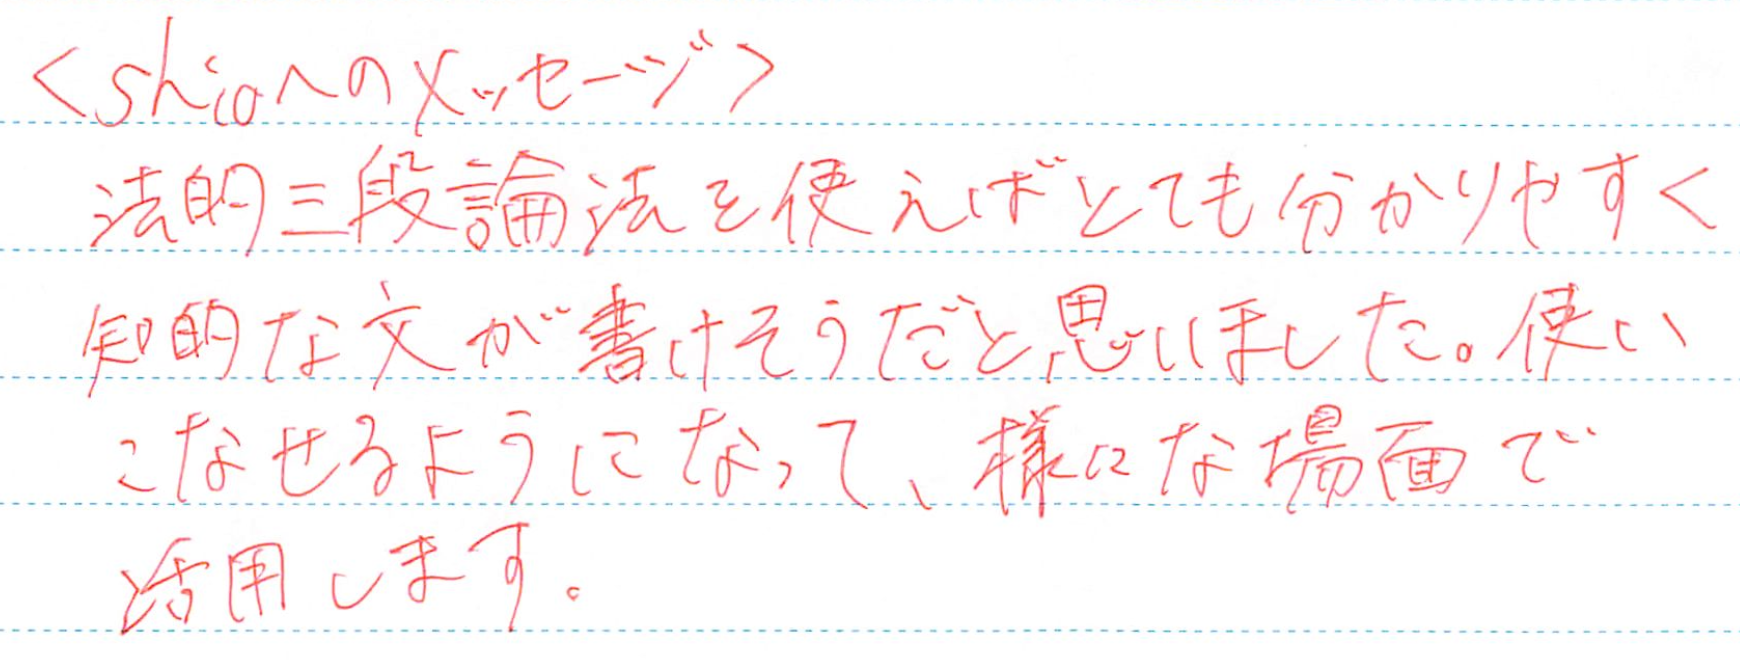 <shioへのメッセージ>
法的三段論法を使えばとても分かりやすく
知的な文が書けそうだと思いました。使い
こなせるようになって、様々な場面で
活用します。